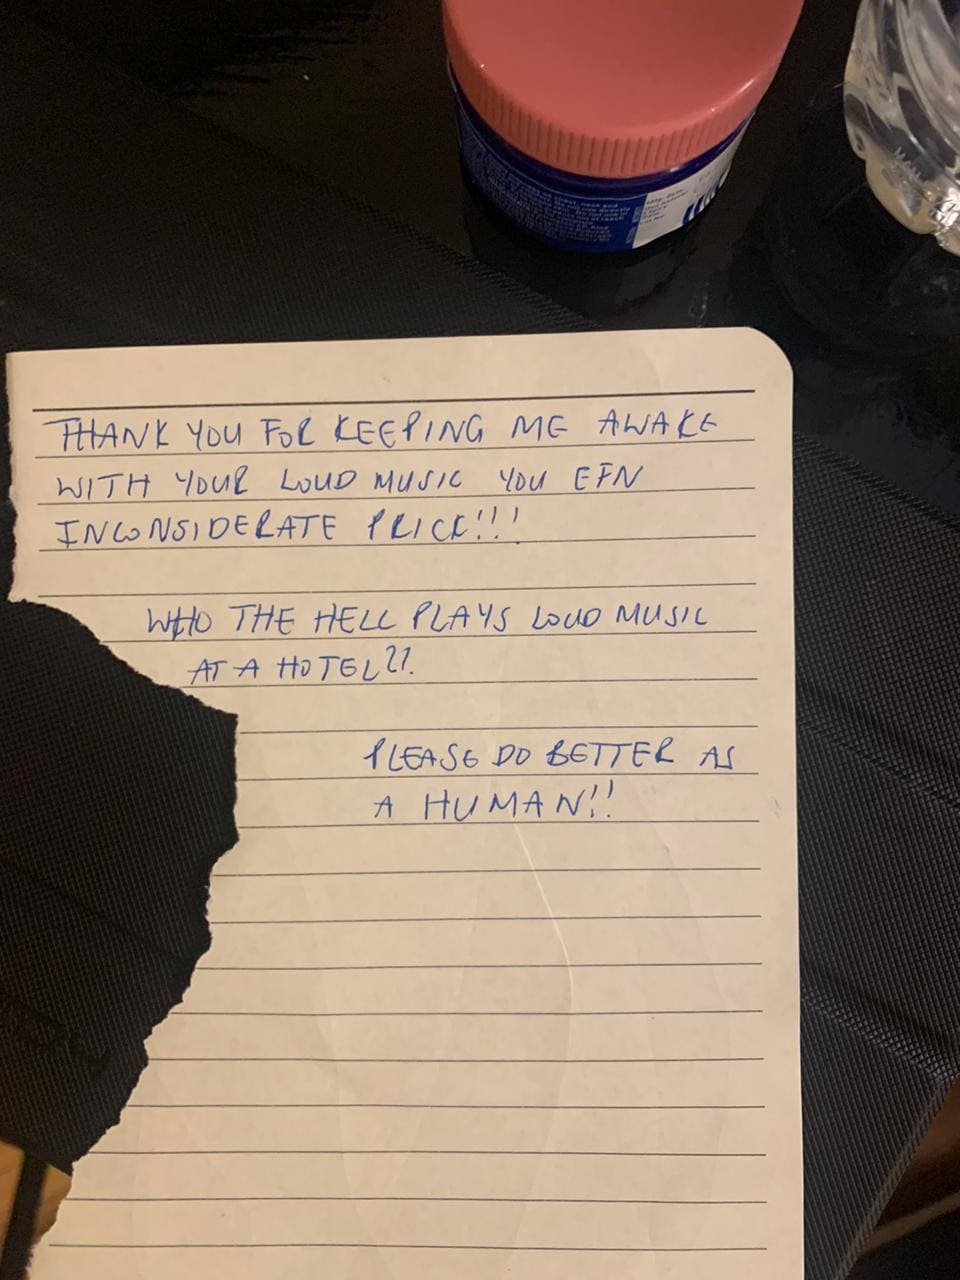 THANK YOU FOR KEEPING ME AWAKE
WITH YOUR LOUD MUSIC YOU EFN
INCONSIDERATE PRICK!!!
WHO THE HELL PLAYS LOUD MUSIC
AT A HOTEL??.
PLEASE DO BETTER AS
A HUMAN!!